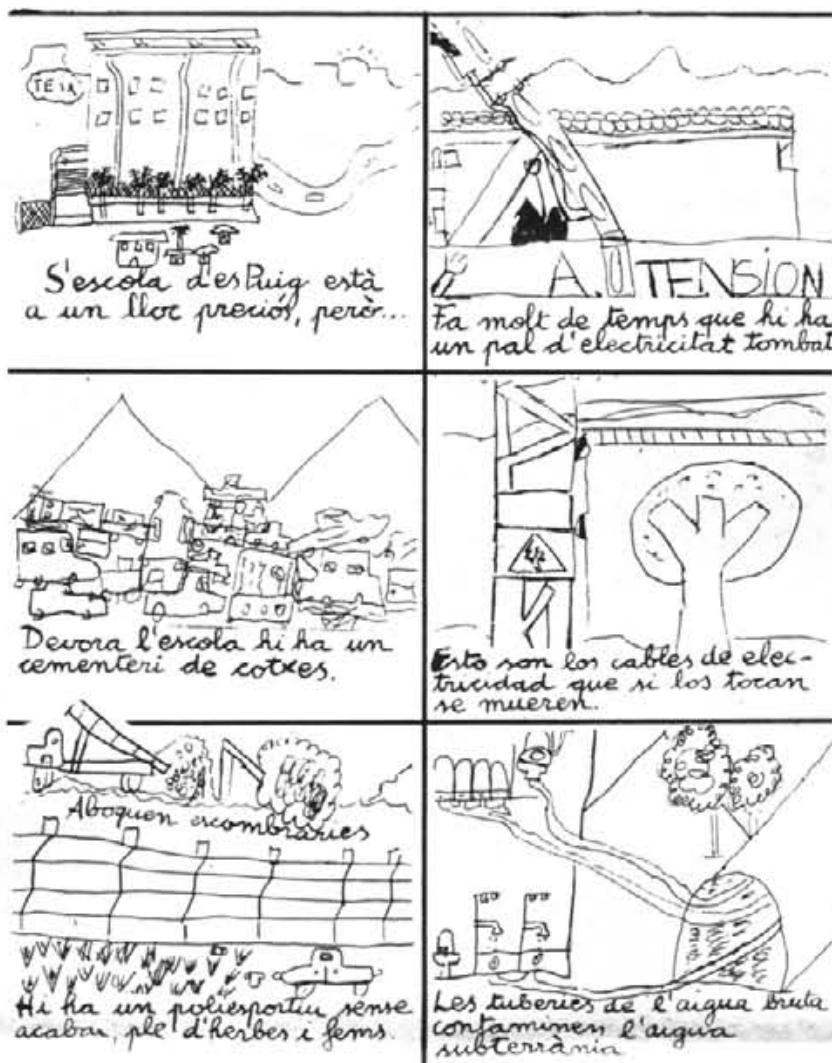 TEIX
S'escola d'es Puig està
a un lloc preciós, però...
A. TENSION
Fa molt de temps que hi ha
un pal d'electricitat tombat
Devora l'escola hi ha un
cementeri de cotxes.
Esto son los cables de elec-
tricidad que si los tocan
se mueren.
Aboquen escombraries
Hi ha un poliesportiu sense
acabar, ple d'herbes i fems.
Les tuberies de l'aigua bruta
contaminen l'aigua
subterrània